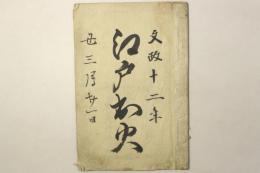 文政十二年
江戸出火
丑三月廿一日